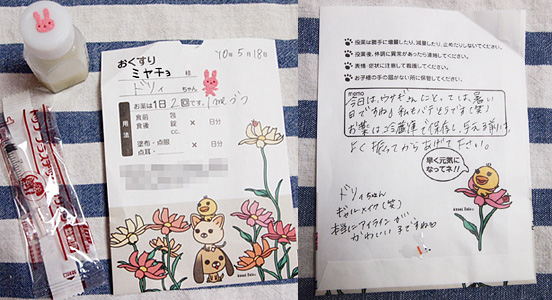 おくすり
'10年5月18日
ミヤチョ 様
ドリィ ちゃん
お薬は1日2回です。1mlずつ
用法
食前 包
食後 錠 × 日分
cc.
塗布・点眼
点耳 × 日分
投薬は勝手に増量したり、減量したり、止めたりしないでください。
投薬後、体調に異常があったら連絡してください。
表情・症状に注意して看護してください。
お子様の手の届かない所に保管してください。
memo
今日は、ウサギさんにとっては、暑い
日ですね！私もバテそうです(笑)
お薬は冷蔵庫で保存し、与える前は、
よく振ってからあげて下さい。
早く元気に
なってネ!!
ドリィちゃん
ギャルメイク(笑)
本当にアイラインが
かわいい子ですね